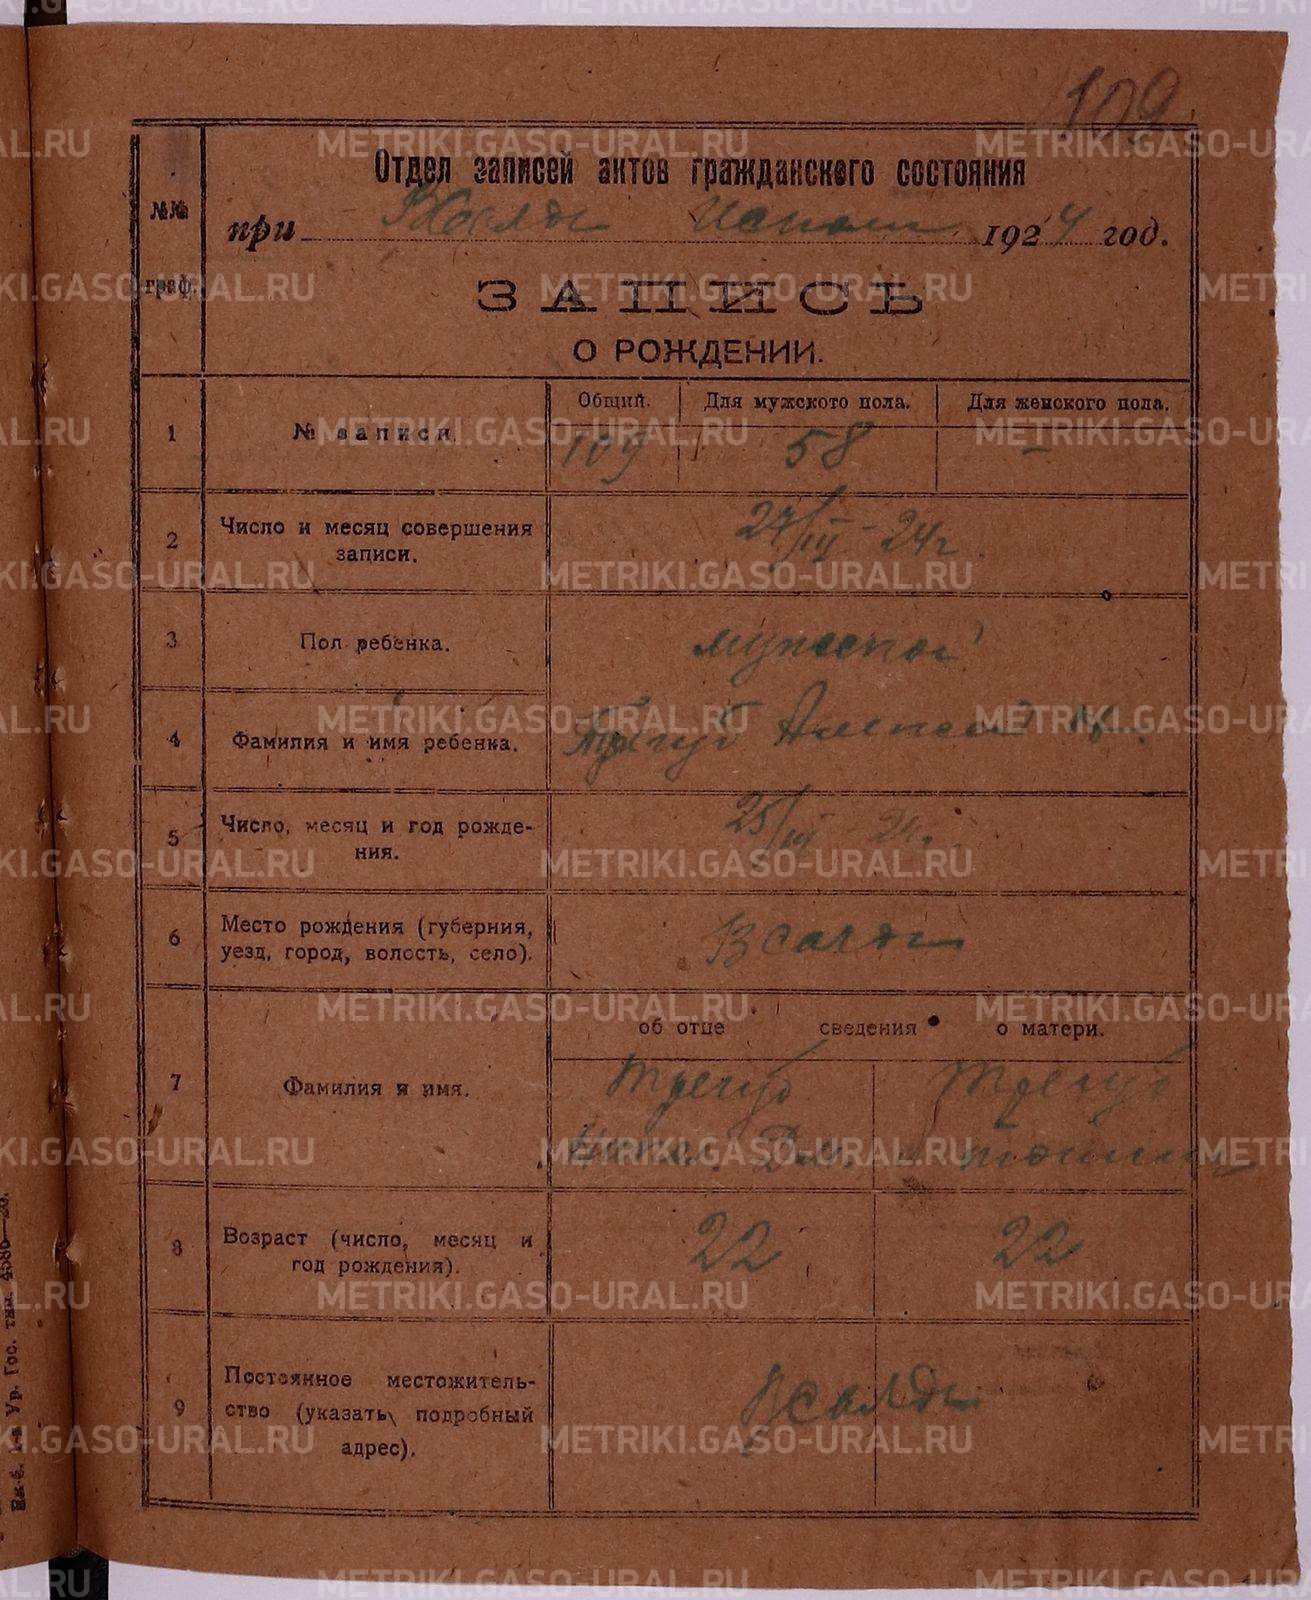 109
Отдел записей актов гражданского состояния
№№ граф.
при В Салде Исполк 1924 год.
ЗАПИСЬ
О РОЖДЕНИИ.
Общий. Для мужского пола. Для женского пола.
1 № записи. 109 58 –
2 Число и месяц совершения
записи. 27/III – 24 г.
3 Пол ребенка. мужской
4 Фамилия и имя ребенка. Трегуб Алексей Н.
5 Число, месяц и год рожде-
ния. 25/III 24 г.
6 Место рождения (губерния,
уезд, город, волость, село). В Салда
об отце сведения о матери.
7 Фамилия и имя. Трегуб Трегуб
Никол. Дм.
8 Возраст (число, месяц и
год рождения). 22 22
9 Постоянное местожитель-
ство (указать подробный
адрес). В Салда
METRIKI.GASO-URAL.RU